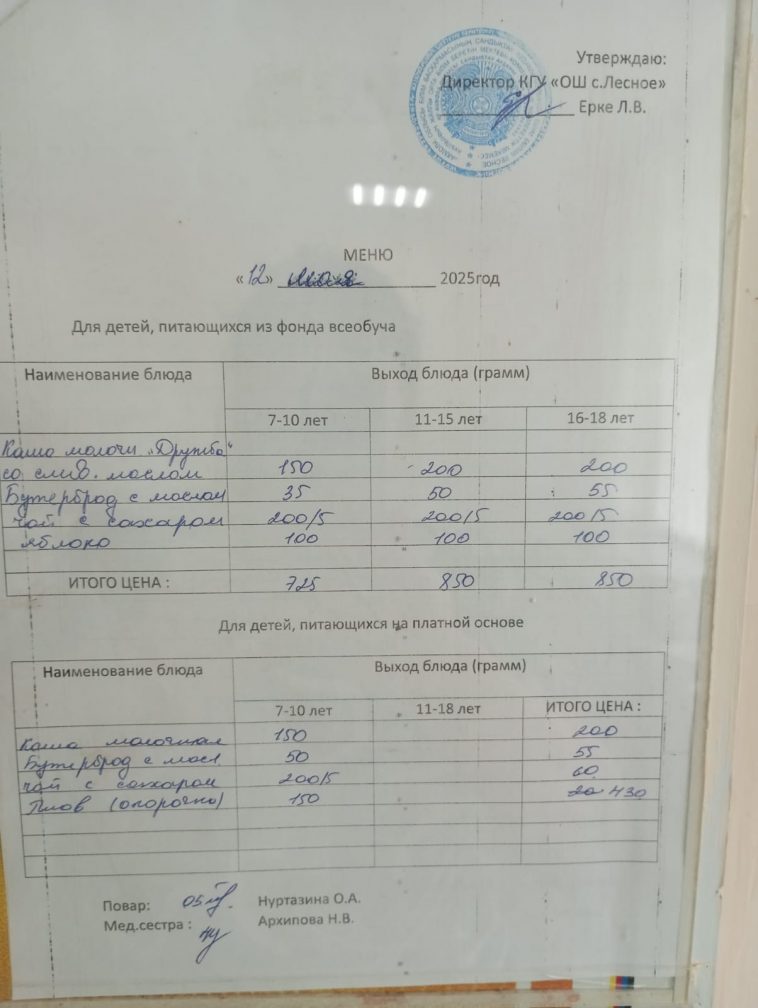 Утверждаю:
Директор КГУ «ОШ с.Лесное»
Ерке Л.В.
МЕНЮ
«12» мая 2025год
Для детей, питающихся из фонда всеобуча
Наименование блюда Выход блюда (грамм)
7-10 лет 11-15 лет 16-18 лет
Каша молочн „Дружба“
со слив. маслом 150 200 200
Бутерброд с маслом 35 50 55
чай с сахаром 200/5 200/5 200/5
яблоко 100 100 100
ИТОГО ЦЕНА : 725 850 850
Для детей, питающихся на платной основе
Наименование блюда Выход блюда (грамм)
7-10 лет 11-18 лет ИТОГО ЦЕНА :
Каша молочная 150 200
Бутерброд с масл 50 55
чай с сахаром 200/5 60
Плов 150 430
Повар: Нуртазина О.А.
Мед.сестра : Архипова Н.В.